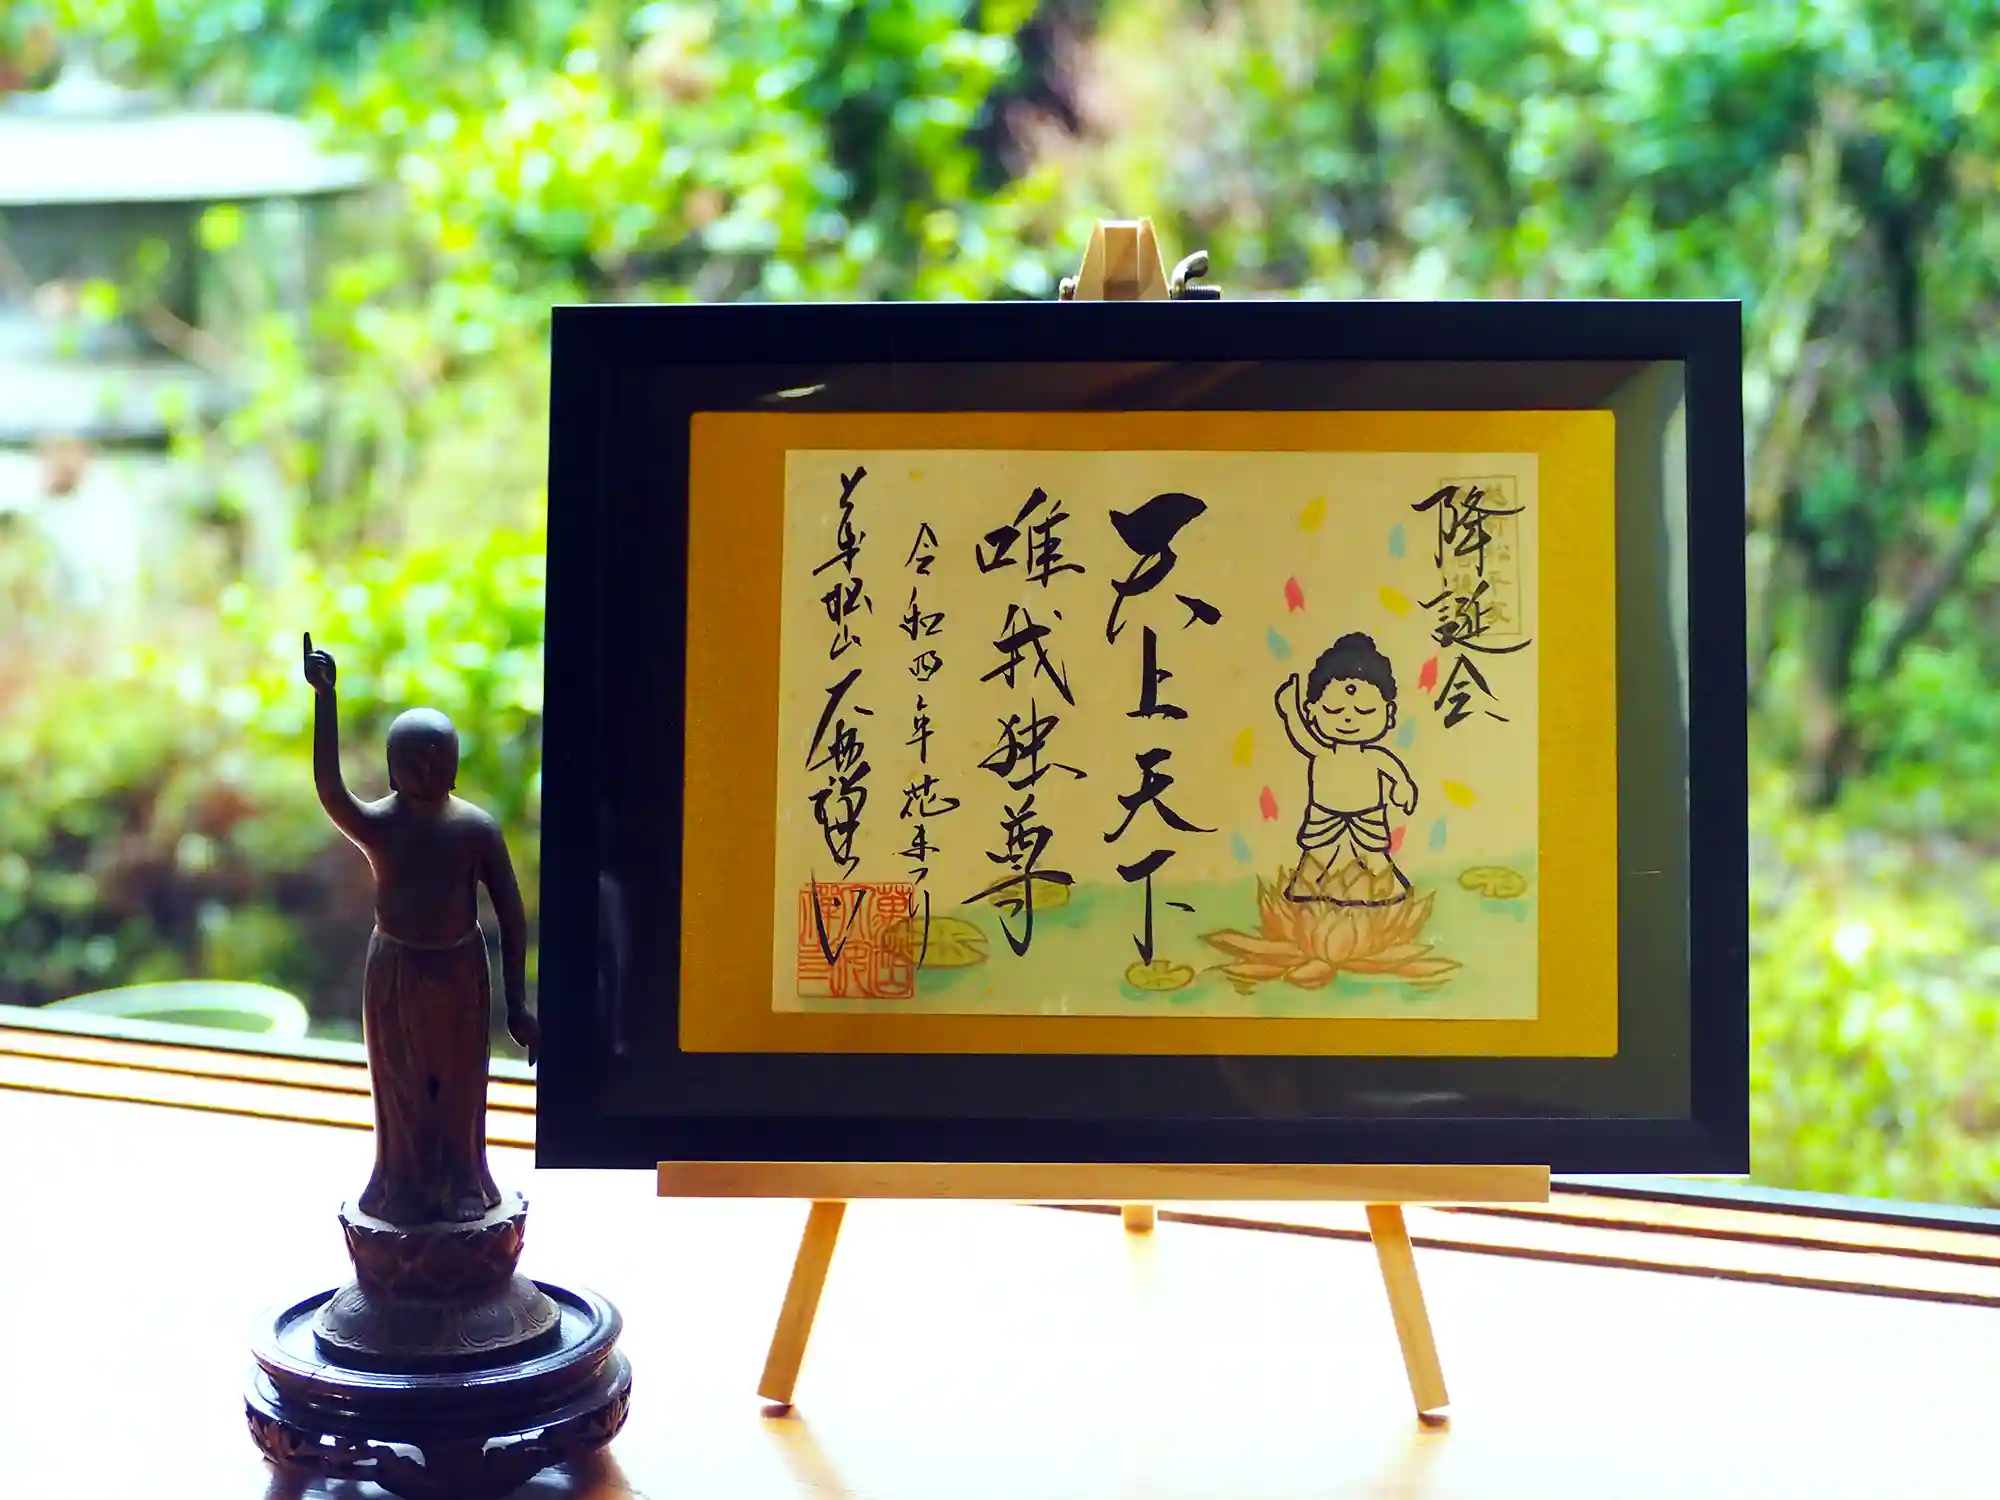 降誕会
天上天下
唯我独尊
令和四年花まつり
萬松山大安禅寺